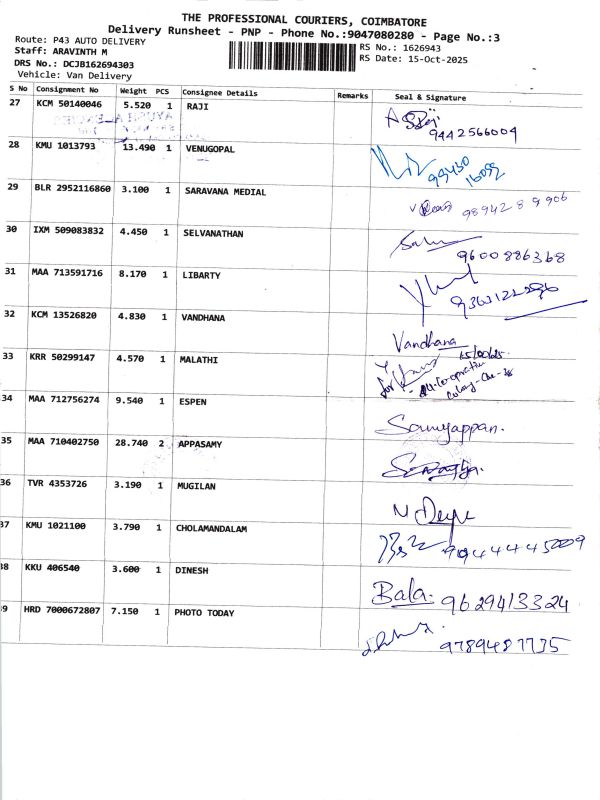 THE PROFESSIONAL COURIERS, COIMBATORE
Delivery Runsheet - PNP - Phone No.:9047080280 - Page No.:3
Route: P43 AUTO DELIVERY
RS No.: 1626943
Staff: ARAVINTH M
RS Date: 15-Oct-2025
DRS No.: DCJB162694303
Vehicle: Van Delivery
S No Consignment No Weight PCS Consignee Details Remarks Seal & Signature
27 KCM 50140046 5.520 1 RAJI
9442566004
28 KMU 1013793 13.490 1 VENUGOPAL
29 BLR 2952116860 3.100 1 SARAVANA MEDIAL
98942 89906
30 IXM 509083832 4.450 1 SELVANATHAN
9600886368
31 MAA 713591716 8.170 1 LIBARTY
32 KCM 13526820 4.830 1 VANDHANA
Vandhana
33 KRR 50299147 4.570 1 MALATHI
34 MAA 712756274 9.540 1 ESPEN
35 MAA 710402750 28.740 2 APPASAMY
36 TVR 4353726 3.190 1 MUGILAN
37 KMU 1021100 3.790 1 CHOLAMANDALAM
38 KKU 406540 3.600 1 DINESH
Bala. 9629413324
39 HRD 7000672807 7.150 1 PHOTO TODAY
9789487735